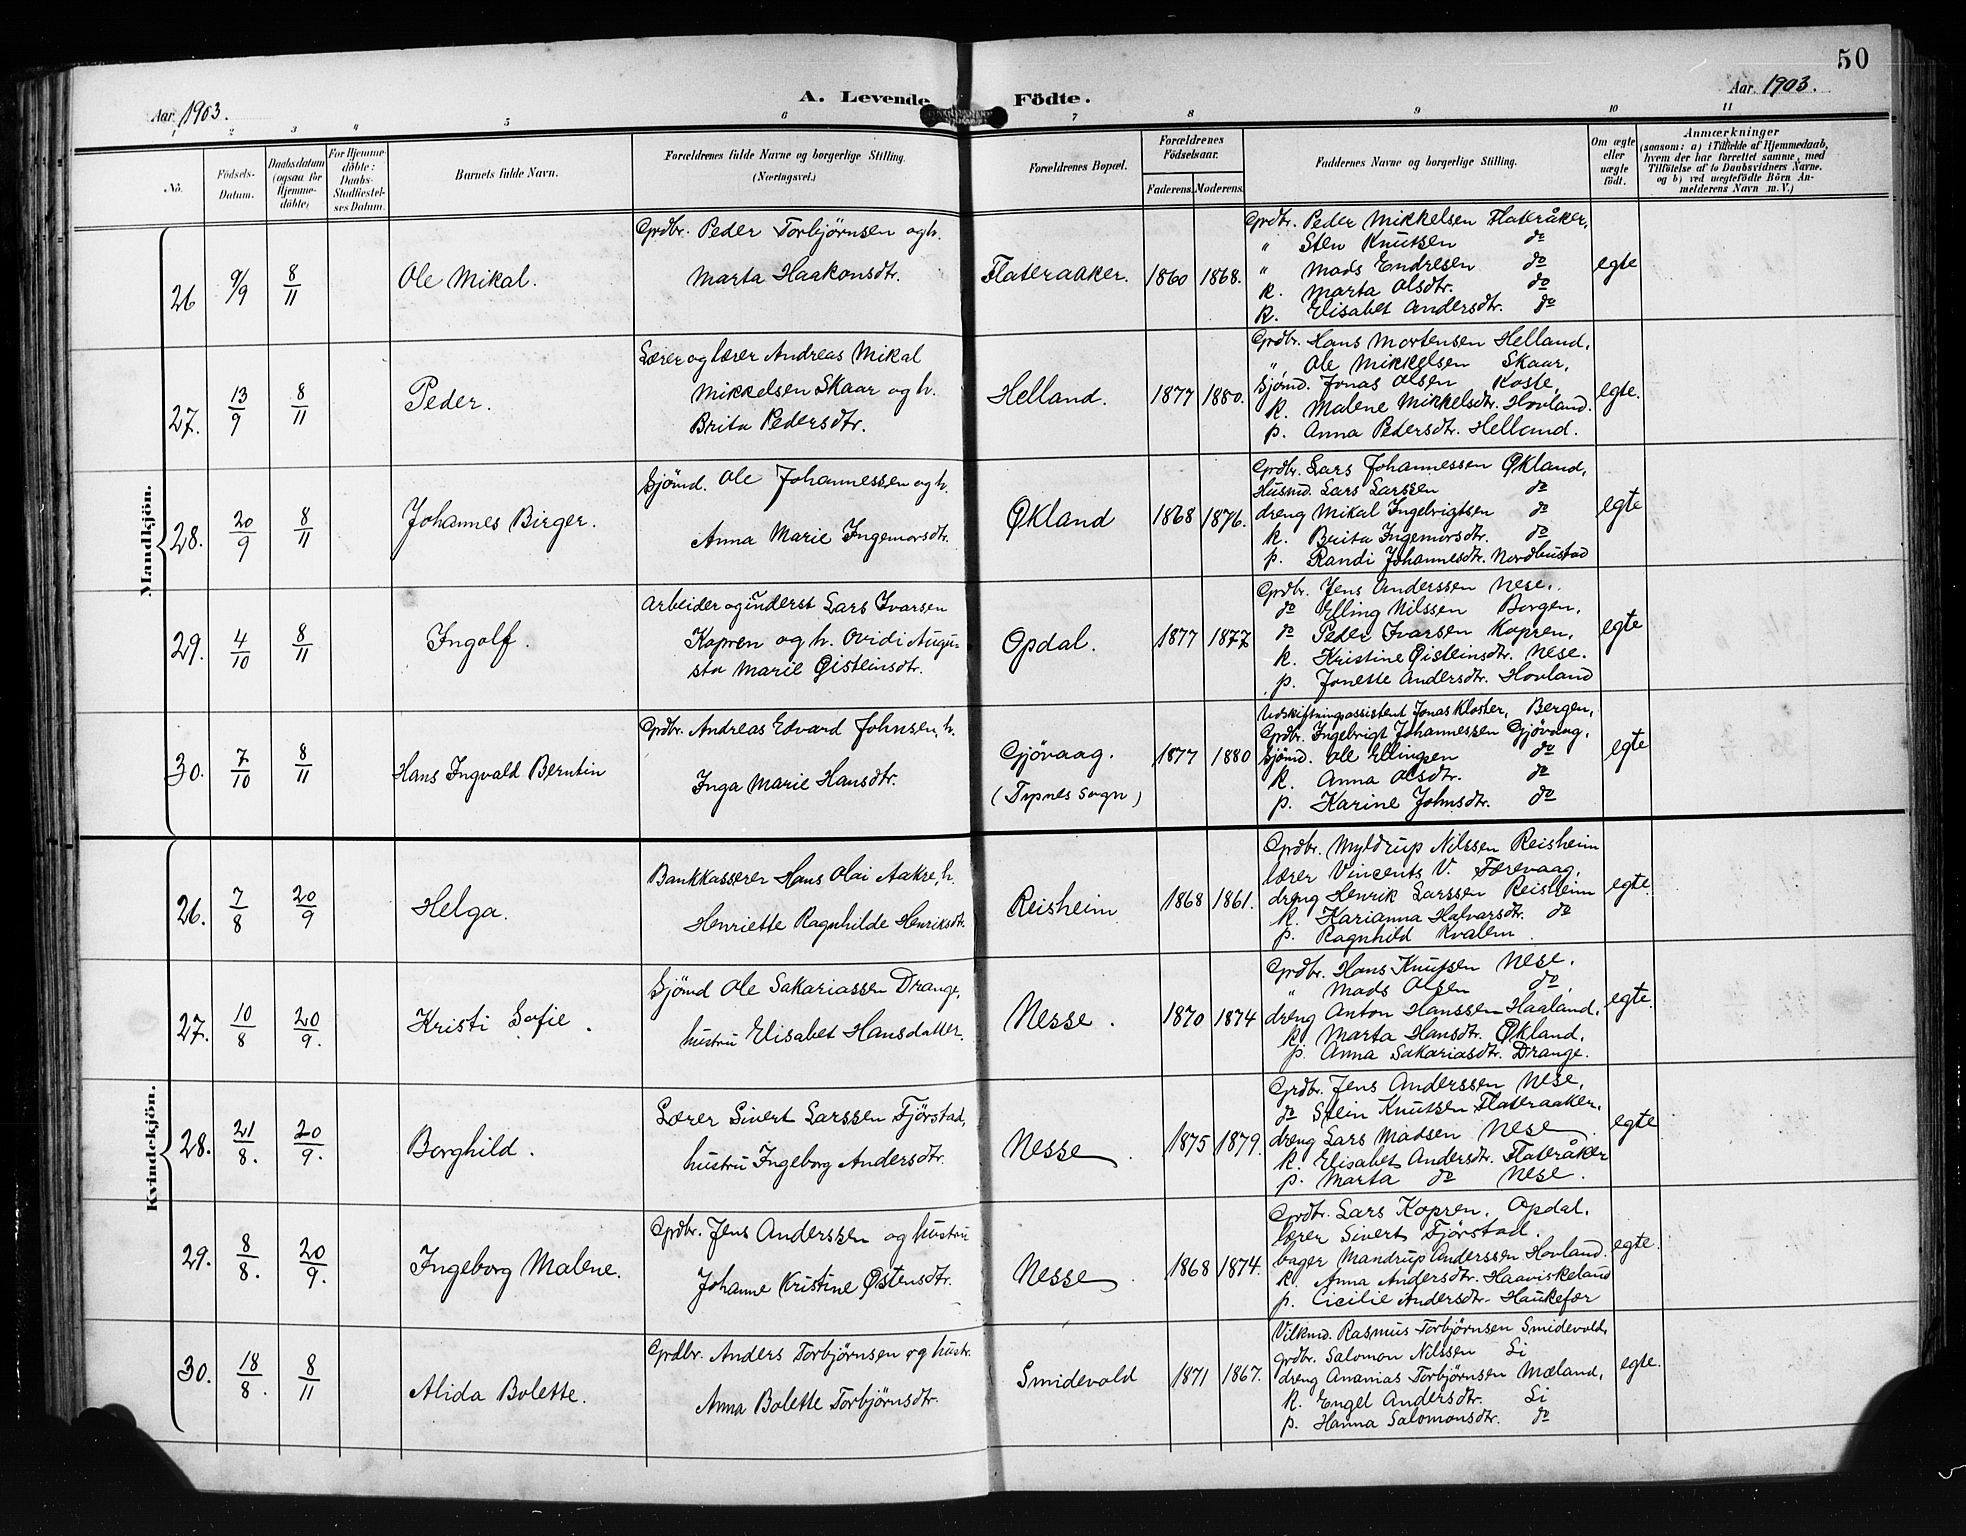 50
Aar 1903.
A. Levende Födte.
Aar 1903.
1 2 3 4 5 6 7 8 9 10 11
No.
Födsels-Datum.
Daabsdatum (ogsaa for Hjemme-döbte)
For Hjemme-döbte: Daabs-Stadfæstel-ses Datum.
Barnets fulde Navn.
Forældrenes fulde Navne og borgerlige Stilling. (Næringsvei.)
Forældrenes Bopæl.
Forældrenes Födselsaar.
Faderens. Moderens.
Faddernes Navne og borgerlige Stilling.
Om ægte eller uægte födt.
Anmærkninger
(saasom: a) i Tilfælde af Hjemmedaab, hvem der har forrettet samme, med Tilföielse af to Daabsvidners Navne, og b) ved uægtefödte Börn An-melderens Navn m. V.)
Mandkjön.
26 9/9 8/11 Ole Mikal.
Grdbr. Peder Torbjørnsen og h.
Marta Haakonsdtr.
Flateraaker. 1860 1868.
Grdbr. Peder Mikkelsen Flateråker,
" Sten Knutsen do
" Mads Endresen do
k. Marta Olsdtr. do
k. Elisabet Andersdtr. do
egte
27. 13/9 8/11 Peder.
Lærer og lærer Andreas Mikal
Mikkelsen Skaar og h.
Brita Pedersdtr.
Helland. 1877 1880.
Grdbr. Hans Mortensen Helland,
" Ole Mikkelsen Skaar,
Sjømd. Jonas Olsen Koste,
k. Malene Mikkelsdtr. Hovland.
p. Anna Pedersdtr. Helland.
egte.
28. 20/9 8/11 Johannes Birger.
Sjömd. Ole Johannessen og h.
Anna Marie Ingemorsdtr.
Økland 1868 1876.
Grdbr. Lars Johannessen Økland,
Husmd. Lars Larssen do
dreng Mikal Ingebrigtsen do
k. Brita Ingemorsdtr. do
p. Randi Johannesdtr. Nordhustad
egte
29. 4/10 8/11 Ingolf.
Arbeider og inderst Lars Ivarsen
Kopren og h. Ovidi Augu-
sta Marie Øisteinsdtr.
Opdal. 1877 1877
Grdbr. Jens Anderssen Nese,
do Elling Nilssen Borgen,
do Peder Ivarsen Kopren,
k. Kristine Øisteinsdtr. Nese.
p. Jonette Andersdtr. Hovland
egte
30. 7/10 8/11 Hans Ingvald Berntin
Grdbr. Andreas Edvard Johnsen, h.
Inga Marie Hansdtr.
Gjövaag.
(Typnes sogn)
1877 1880
Udskiftningsassistent Jonas Kloster, Bergen,
Grdbr. Ingebrigt Johannessen Gjövaag,
Sjömd. Ole Ellingsen do
k. Anna Olsdtr. do
p. Karine Johnsdtr. do
egte
Kvindekjön.
26. 7/8 20/9 Helga.
Bankkasserer Hans Olai Aakre, h.
Henriette Ragnhilde Henriksdtr.
Reisheim 1868 1861.
Grdbr. Myldrup Nilssen Reisheim
lærer Vincents V. Færevaag,
dreng Henrik Larssen Reisheim
k. Karianna Halvarsdtr. do
p. Ragnhild Kvalem.
egte.
27. 10/8 20/9. Kristi Sofie.
Sjömd Ole Sakariassen Drange,
hustru Elisabet Hansdatter.
Nesse. 1870 1874
Grdbr. Hans Knutsen Nese.
" Mads Olsen do,
dreng Anton Hanssen Haaland,
k. Marta Hansdtr. Økland,
p. Anna Sakariasdtr. Drange.
egte.
28. 21/8. 20/9. Borghild.
Lærer Sivert Larssen Fjörstad,
hustru Ingeborg Andersdtr.
Nesse. 1875 1879.
Grdbr. Jens Anderssen Nese,
do Stein Knutsen Flateraaker,
dreng Lars Madsen Nese
k. Elisabet Andersdtr. Flateråker
p. Marta do Nese.
egte
29. 8/8. 20/9. Ingeborg Malene.
Grdbr. Jens Anderssen og hustru
Johanne Kristine Østensdtr.
Nesse. 1868 1874.
Grdbr. Lars Kopren, Opdal,
lærer Sivert Fjörstad.
bager Mandrup Anderssen Hovland.
k. Anna Andersdtr. Haaviskeland
p. Cicilie Andersdtr. Haukefær
egte.
30. 18/8. 8/11 Alida Bolette.
Grdbr. Anders Torbjørnsen og hustr.
Anna Bolette Torbjörnsdtr.
Smidevold 1871 1867.
Vilkmd. Rasmus Torbjørnsen Smidevold,
grdbr. Salomon Nilssen Li
dreng Ananias Torbjørnsen Mæland,
k. Engel Andersdtr. Li
p. Hanna Salomonsdtr. do
egte.